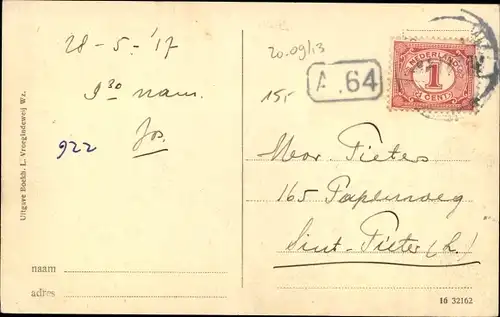 28-5-'17
9³⁰ nam.
Jos.
922
20.09/13
15,-
A .64
NEDERLAND
1
CENT
165 Papenweg
Sint-Pieter (L.)
Uitgave Boekh. L. Vroegindeweij Wz.
naam
adres
16 32162